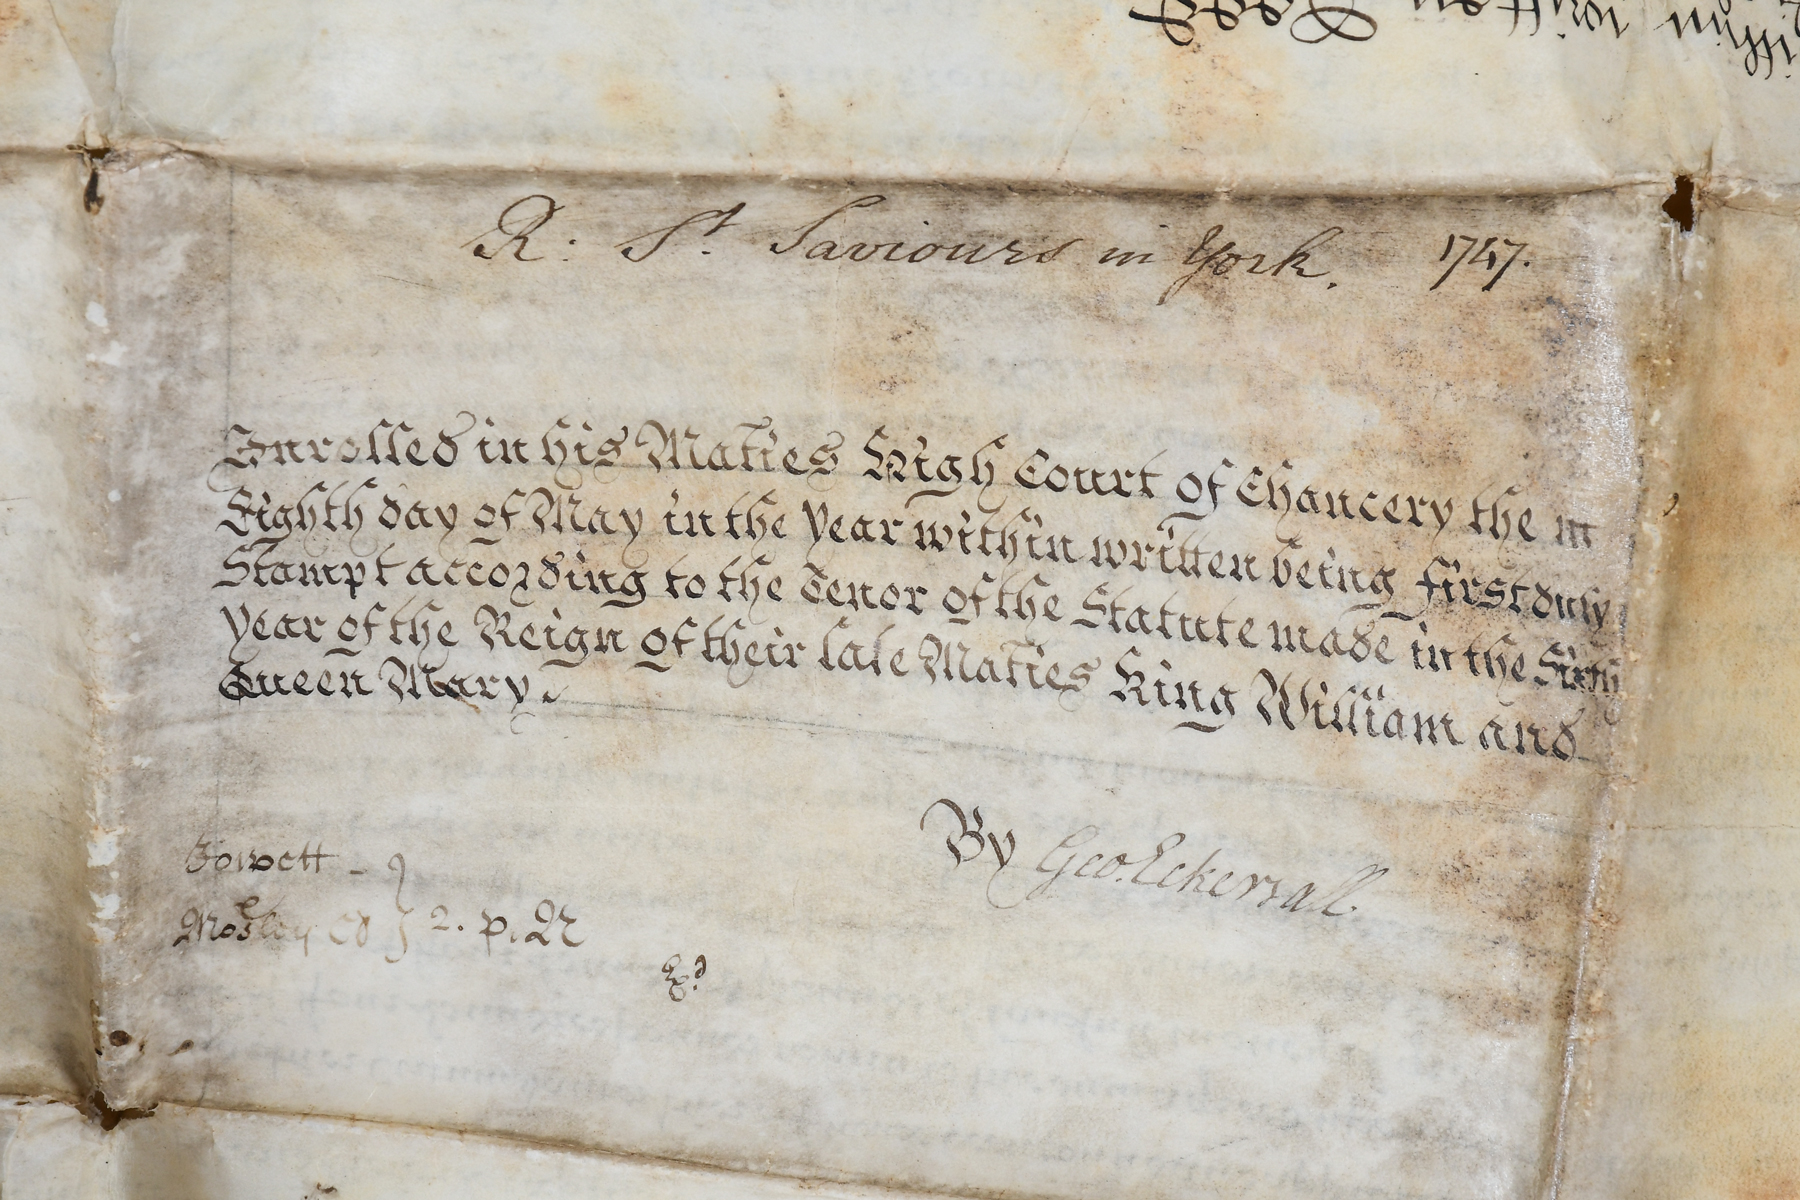 R: St. Saviours in York. 1747.
Inrolled in his Maties High Court of Chancery the
Eighth day of May in the year within written being first duly
Stampt according to the Tenor of the Statute made in the Sixth
year of the Reign of their late Maties King William and
Queen Mary.
By Geo. Eckersall.
Mosley 2. p. N
Exd